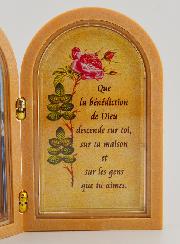 Que
la bénédiction
de Dieu
descende sur toi,
sur ta maison
et
sur les gens
que tu aimes.